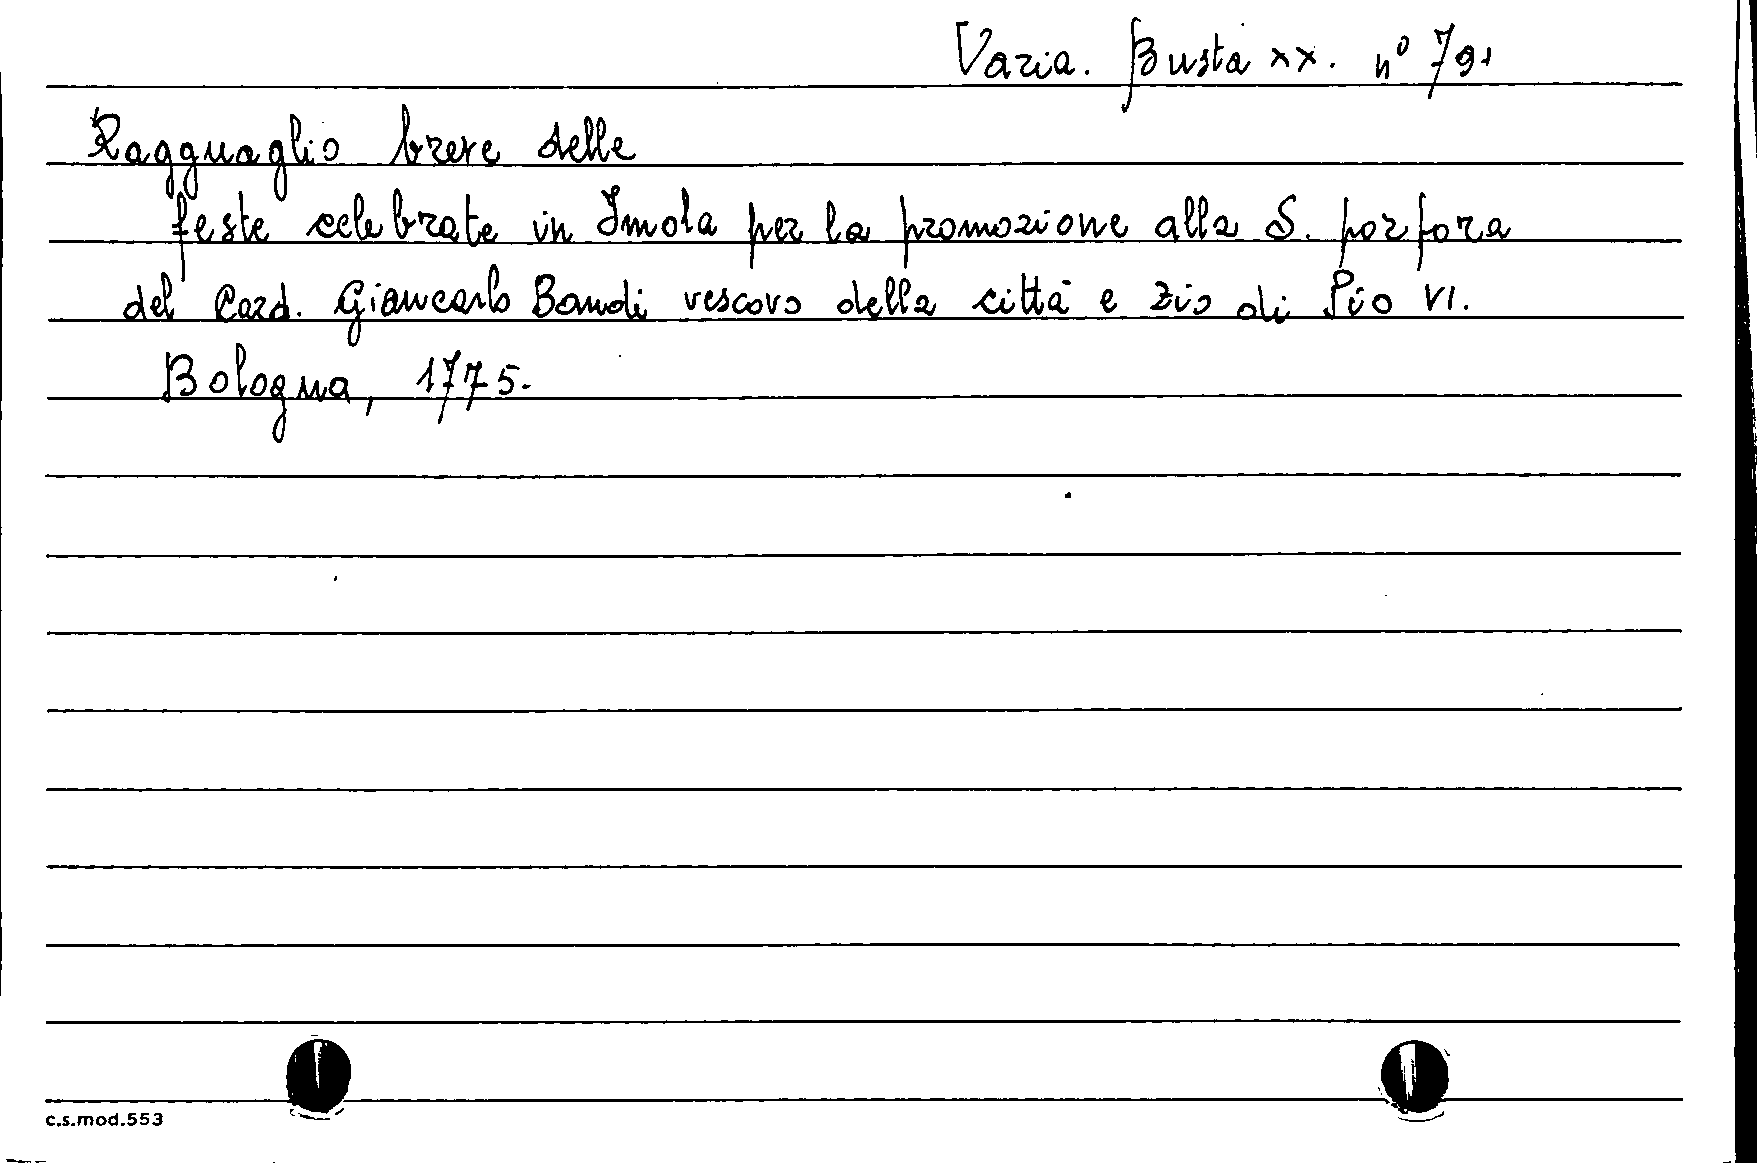 Varia. Busta XX. nº 791
Ragguaglio breve delle
feste celebrate in Imola per la promozione alla S. porpora
del Card. Giancarlo Bandi vescovo della città e zio di Pio VI.
Bologna, 1775.
c.s.mod.553